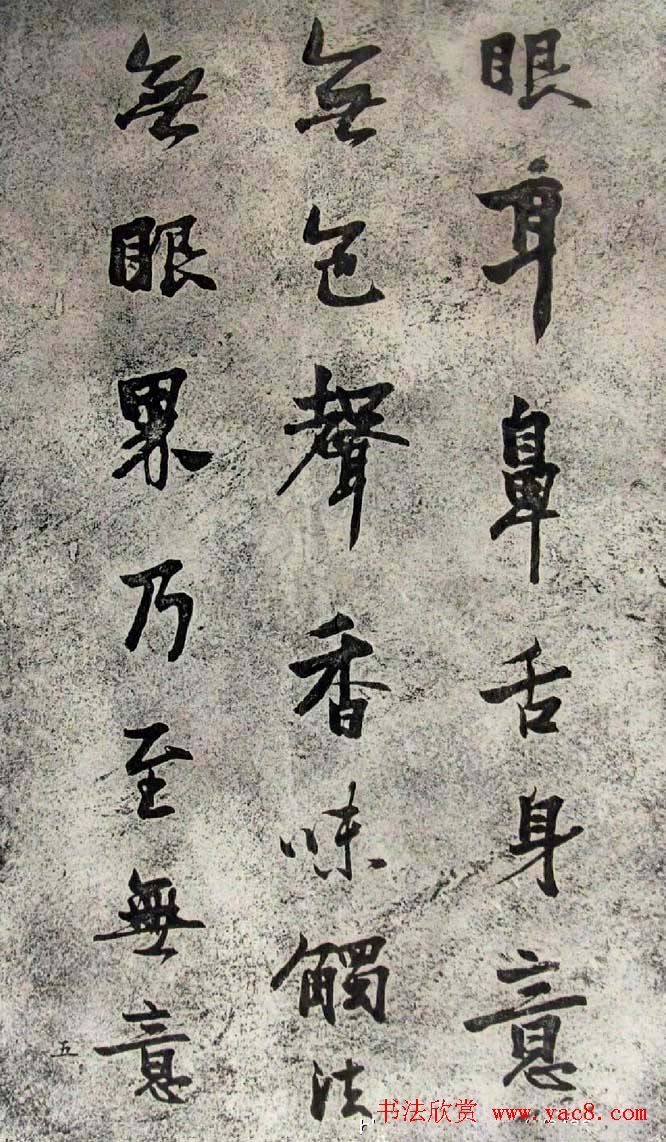 眼耳鼻舌身意
無色聲香味觸法
無眼界乃至無意
五
书法欣赏 www.yac8.com